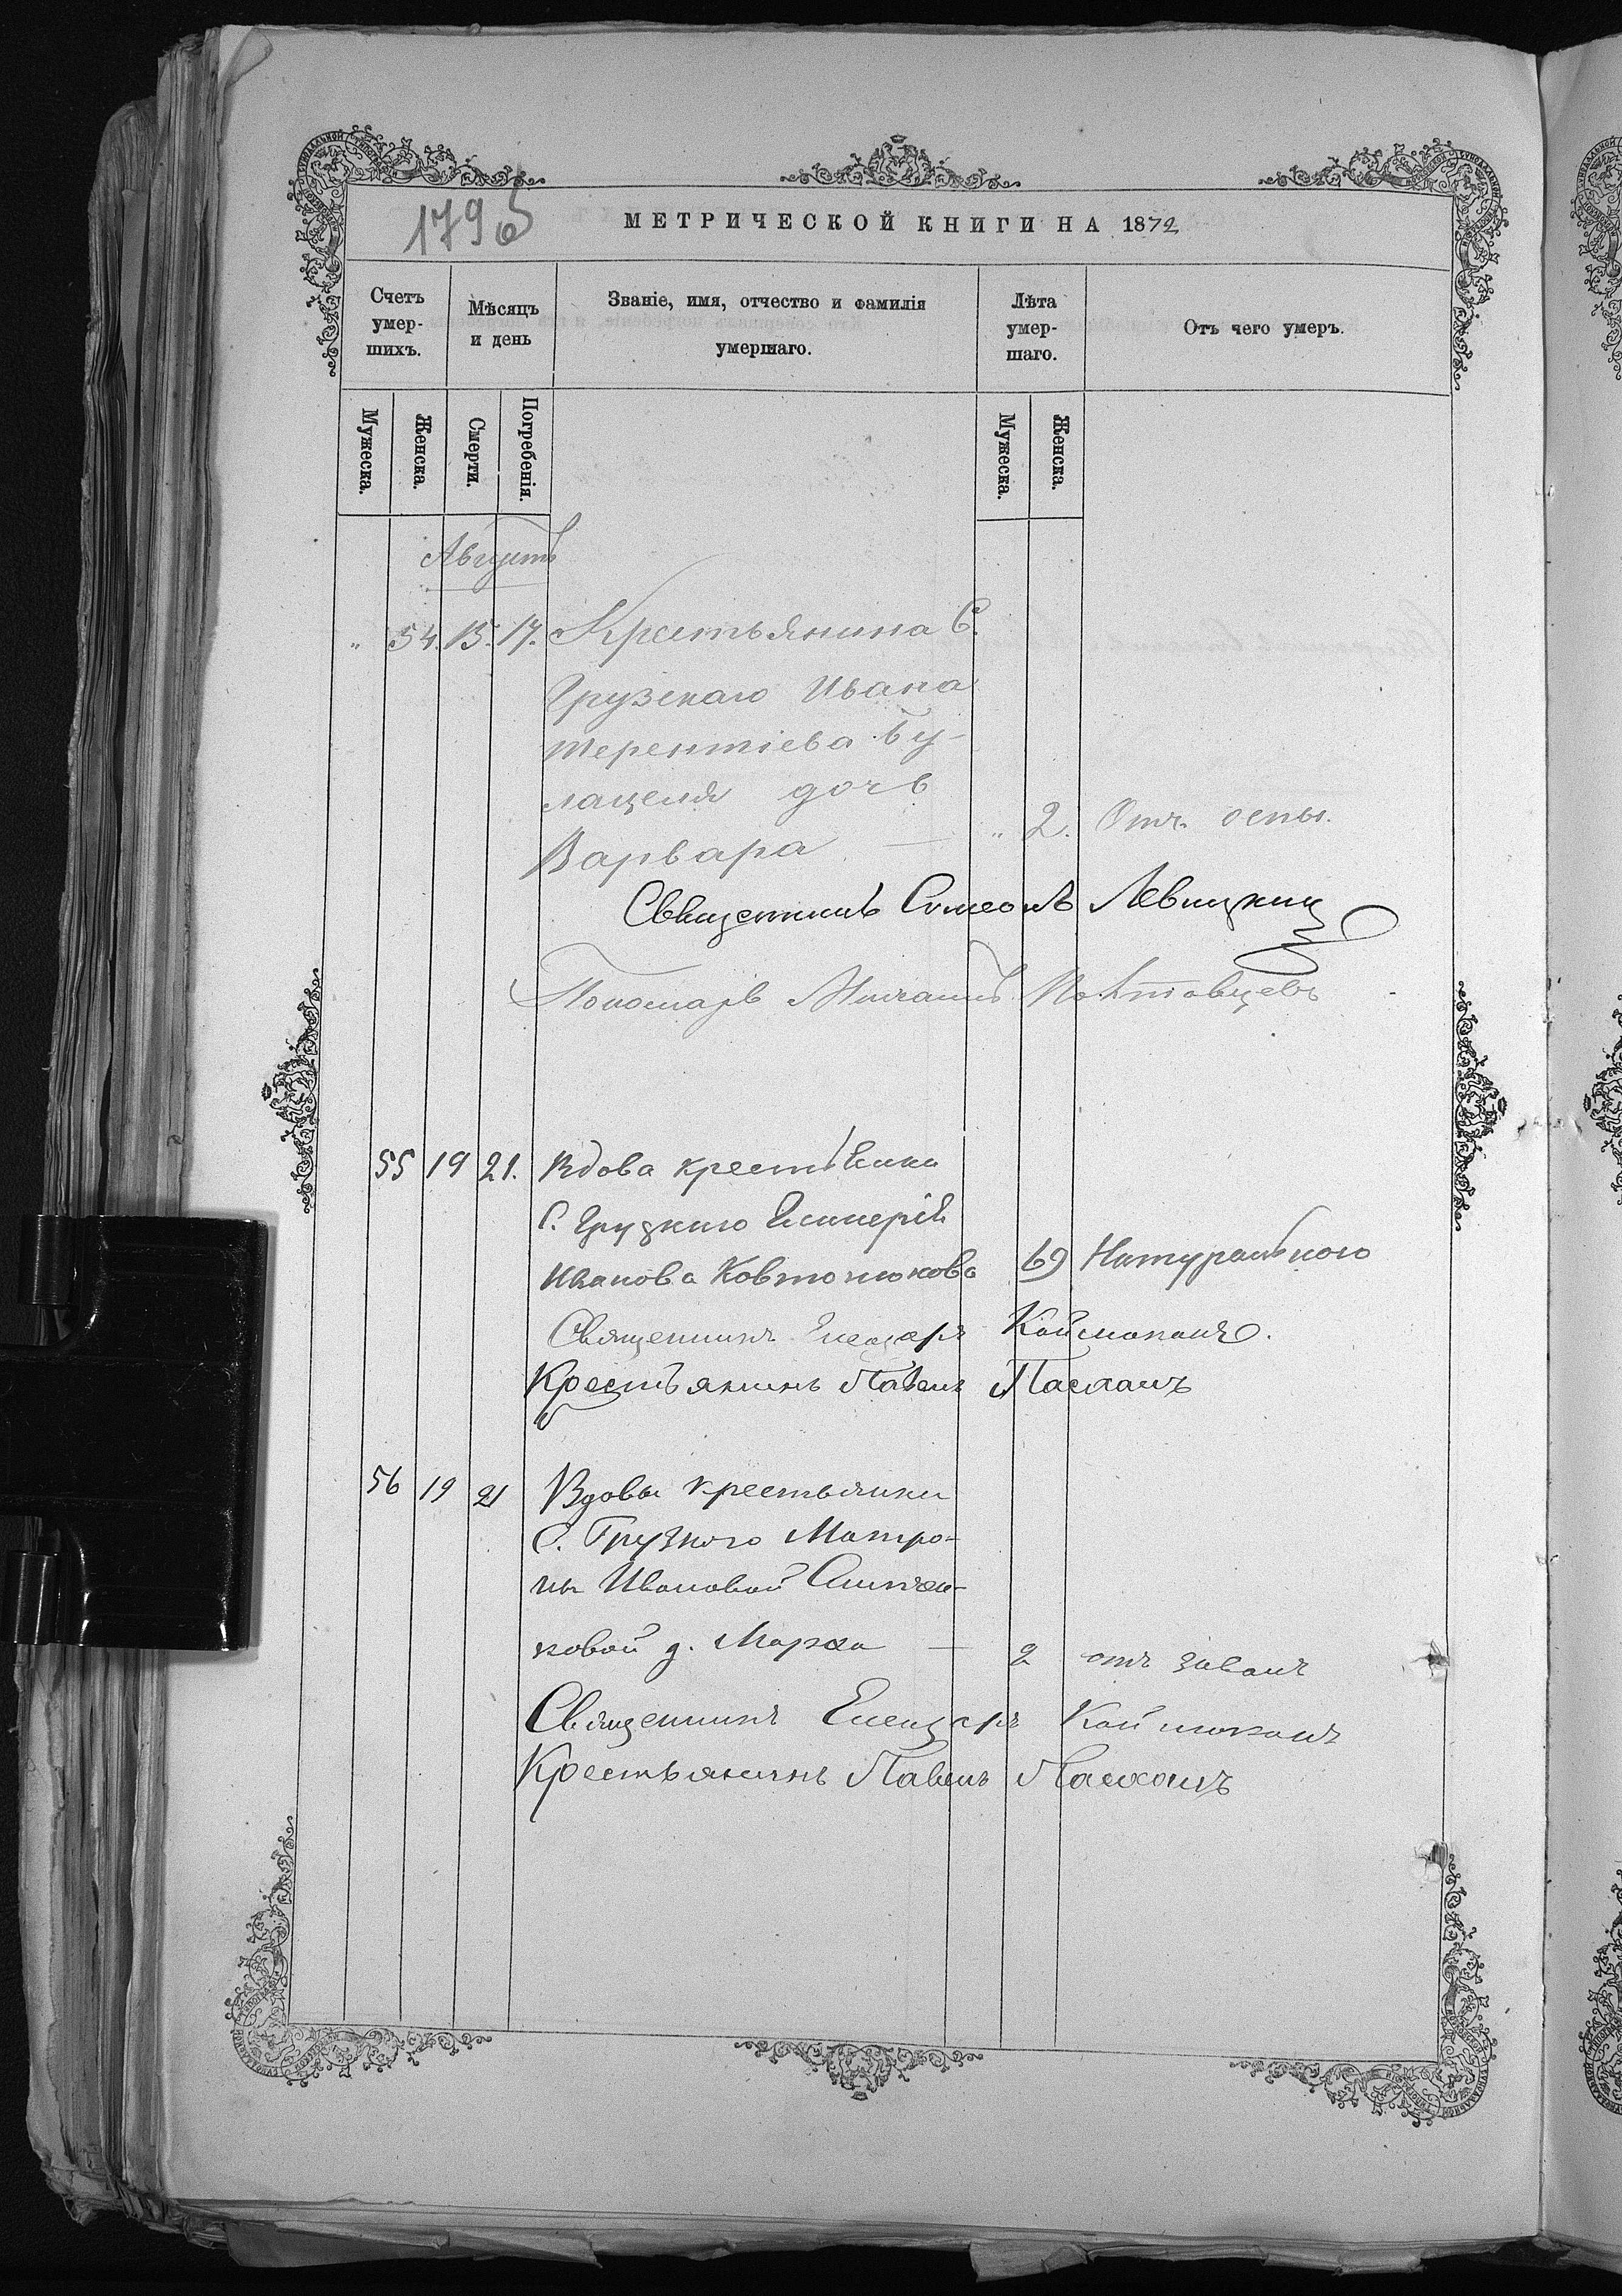 179 об
МЕТРИЧЕСКОЙ КНИГИ НА 1872
Счетъ умер-шихъ.
Мѣсяцъ и день
Званіе, имя, отчество и фамилія умершаго.
Лѣта умер-шаго.
Отъ чего умеръ.
Мужеска.
Женска.
Смерти.
Погребенія.
Мужеска.
Женска.
Августъ
" 54. 15. 17. Крестьянина С.
Грузскаго Ивана
Терентіева Бу-
лацеля дочь
Варвара — " 2. Отъ оспы.
Священникъ Симеонъ Левицкий
Пономарь Михаилъ
55 19 21. Вдова крестьянка
С. Грузкого
Иванова Ковтонюкова 69 Натурального
Священникъ Елеазаръ Каймаканъ.
Крестьянинъ Павелъ Пасхалъ
56 19 21 Вдовы крестьянки
С. Грузкого Матро-
ны Ивановой
ковой д. Марѳа — 2 отъ
Священникъ Елеазаръ Каймаканъ
Крестьянинъ Павелъ Пасхалъ